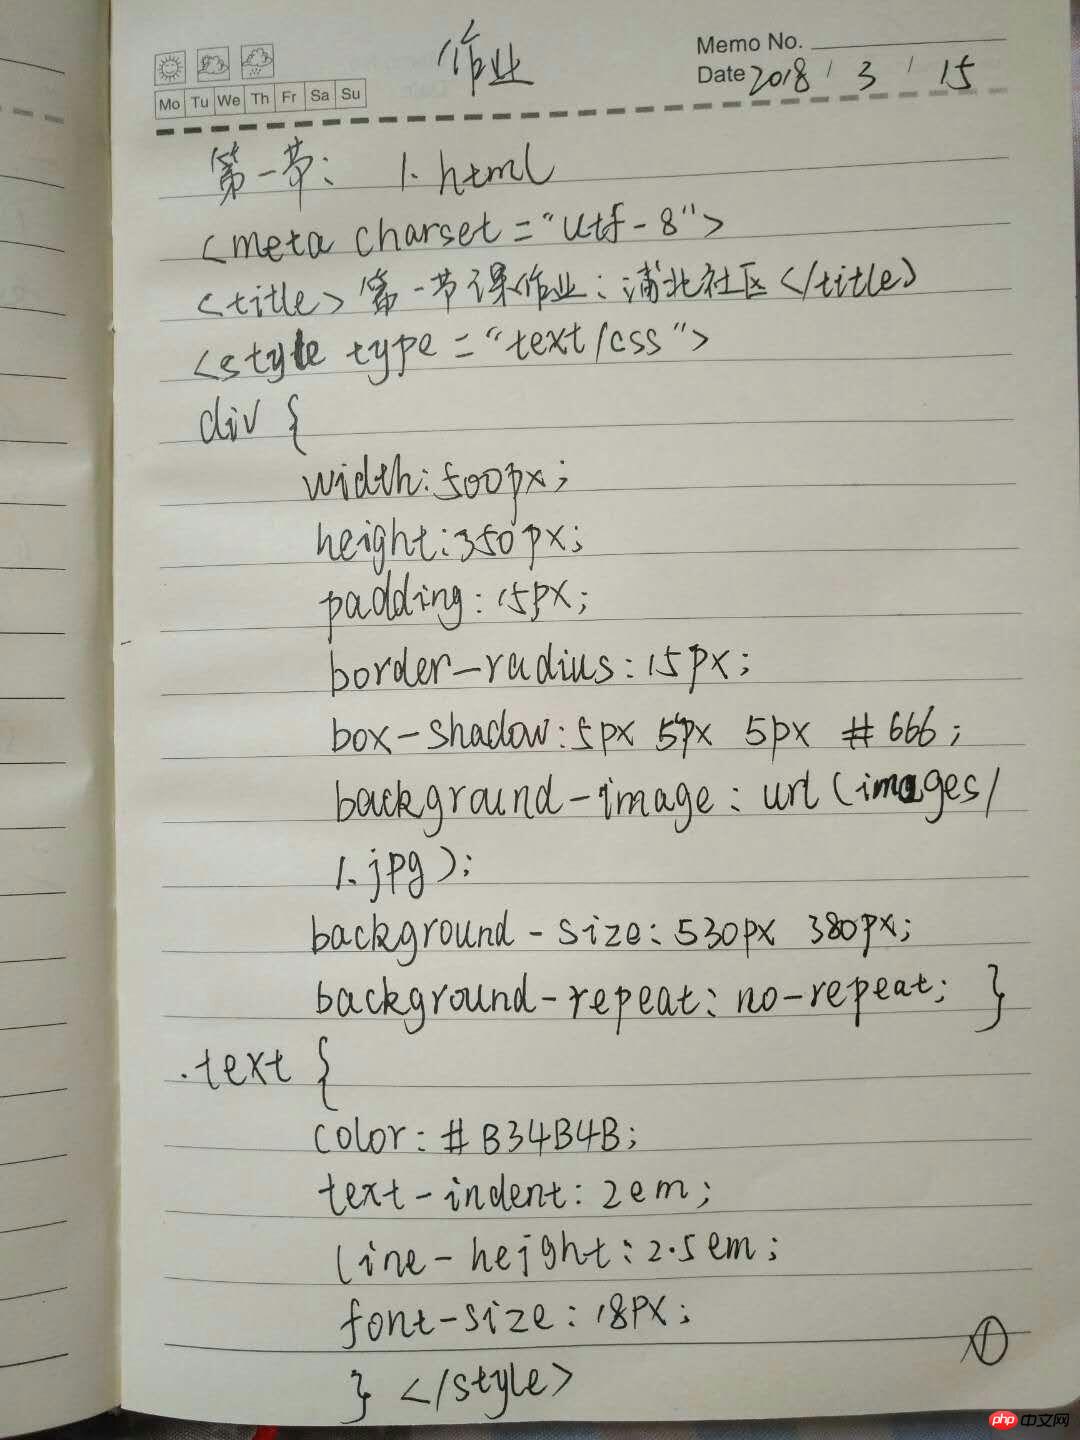 作业
Memo No.
Date 2018 / 3 / 15
Mo Tu We Th Fr Sa Su
第一节: 1. html
<meta charset="utf-8">
<title>第一节课作业:浦北社区</title>
<style type="text/css">
div {
width:500px;
height:350px;
padding:15px;
border-radius:15px;
box-shadow:5px 5px 5px #666;
background-image:url(images/
1.jpg);
background-size:530px 380px;
background-repeat:no-repeat; }
.text {
color:#B34B4B;
text-indent:2em;
line-height:2.5em;
font-size:18px;
} </style>
①
php 中文网